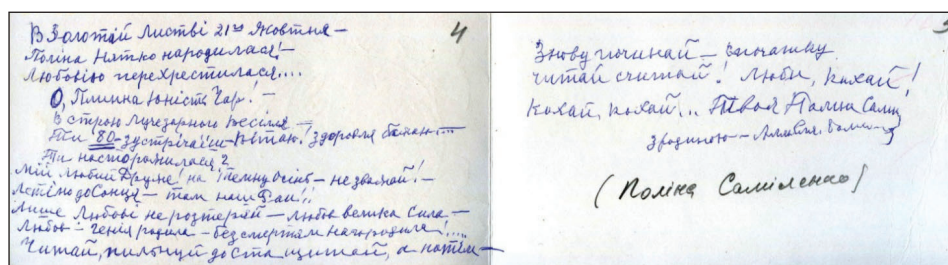 4
В Золотій Листві 21го Жовтня –
Поліна Нятко народилася! –
Любовію перехрестилася....
О, Плинна Юність Чар! –
В строю Лучезарного Весілля –
Ти 80 – зустрічаєш – Вітаю! Здоровля бажаю!...
Ти насторожилася?
Мій Любий Друже! на Темну Осінь – не зважай! –
Летімо до Сонця – там наш Рай!!
Лише Любові не розтеряй – Любов велика Сила –
Любов – Генія родила – безсмертям нагородила!....
Читай, пильнуй до ста щитай, а потім –
Знову починай – Спочатку
читай считай! Люби, кохай!
Кохай, кохай... Твоя Поліна Самій
з родиною –
(Поліна Самійленко)